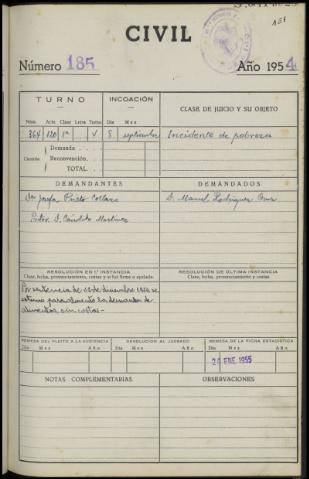 151
CIVIL
Número 185 Año 1954
TURNO INCOACIÓN CLASE DE JUICIO Y SU OBJETO
Núm. Acto Clase Letra Tomo Día Mes
364 120 1ª V 8 septiembre Incidente de pobreza
Cuantía: Demanda
Reconvención.
TOTAL
DEMANDANTES DEMANDADOS
Dª Josefa Prieto Collazo D. Manuel Rodriguez
Pcdor. D. Candido Martinez
RESOLUCIÓN EN 1.ª INSTANCIA RESOLUCIÓN DE ÚLTIMA INSTANCIA
Clase, fecha, pronunciamiento, costas y si fué firme o apelada. Clase, fecha, pronunciamiento y costas
Por sentencia de diciembre 1954 se
estimó parcialmente la demanda de
alimentos, sin costas
REMESA DEL PLEITO A LA AUDIENCIA DEVOLUCION AL JUZGADO REMESA DE LA FICHA ESTADÍSTICA
Día Mes Año Día Mes Año Día Mes Año
ENE. 1955
NOTAS COMPLEMENTARIAS OBSERVACIONES